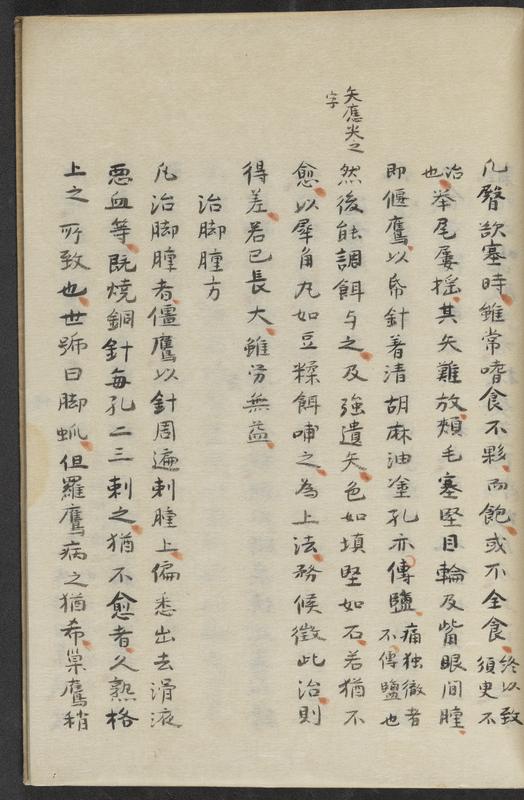 凡臀欲塞時雖常嗜食不夥而飽或不全食終以致須臾不
治也举尾屢揺其矢難放頬毛塞堅目輪及眥眼間腫
即偃鷹以帛針著清胡麻油塗孔亦傳鹽痛独徹者不傳鹽也
然後能調餌与之及強遺矢色如填堅如石若猶不
矢應米之字
愈以犀角丸如豆糅餌哺之為上法務候徴此治則
得差若已長大雖労無益
治脚腫方
凡治脚腫者僵鷹以針周遍刺腫上偏悉出去滑液
悪血等既焼銅針每孔二三刺之猶不愈者久熟格
上之所致也世号曰脚蚍但羅鷹病之猶希巣鷹稍